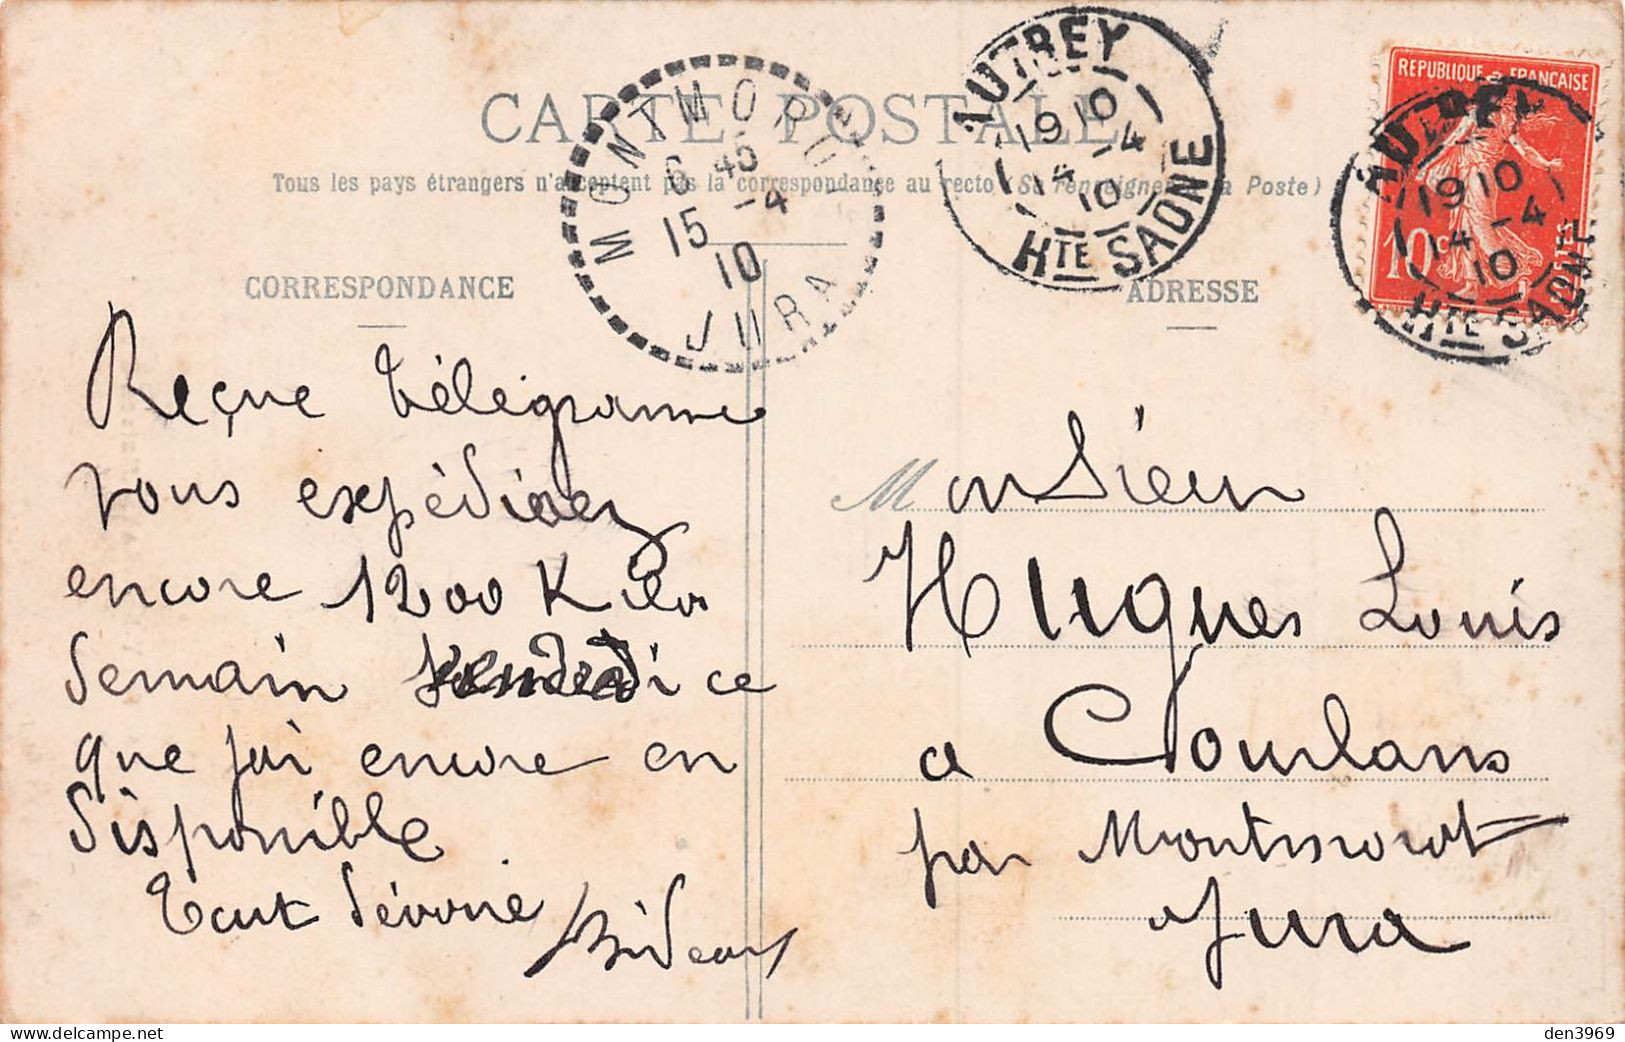 CARTE POSTALE
Tous les pays étrangers n'acceptent pas la correspondance au recto (Se renseigner à la Poste)
CORRESPONDANCE
ADRESSE
MONTMOROT
6 45
15 -4
10
JURA
AUTREY
19 10
14 -4
10
HTE SAONE
REPUBLIQUE FRANCAISE
10c
AUTREY
19 10
14 -4
10
HTE SAONE
Reçue télégramme
vous expédierez
encore 1200 Kilos
demain vendredi ce
que j'ai encore en
disponible
Tout dévoué
Monsieur
Hugues Louis
a Courlans
par Montmorot
Jura
den3969